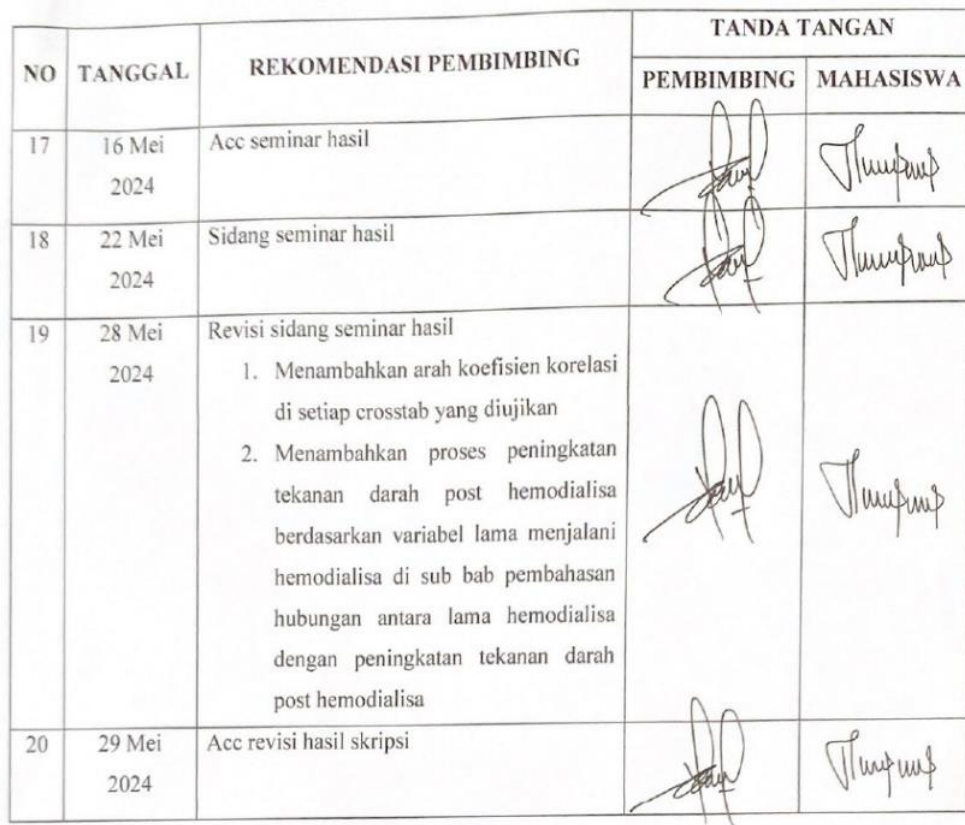 TANDA TANGAN
NO TANGGAL REKOMENDASI PEMBIMBING
PEMBIMBING MAHASISWA
17 16 Mei Acc seminar hasil
2024
18 22 Mei Sidang seminar hasil
2024
19 28 Mei Revisi sidang seminar hasil
2024 1. Menambahkan arah koefisien korelasi
di setiap crosstab yang diujikan
2. Menambahkan proses peningkatan
tekanan darah post hemodialisa
berdasarkan variabel lama menjalani
hemodialisa di sub bab pembahasan
hubungan antara lama hemodialisa
dengan peningkatan tekanan darah
post hemodialisa
20 29 Mei Acc revisi hasil skripsi
2024